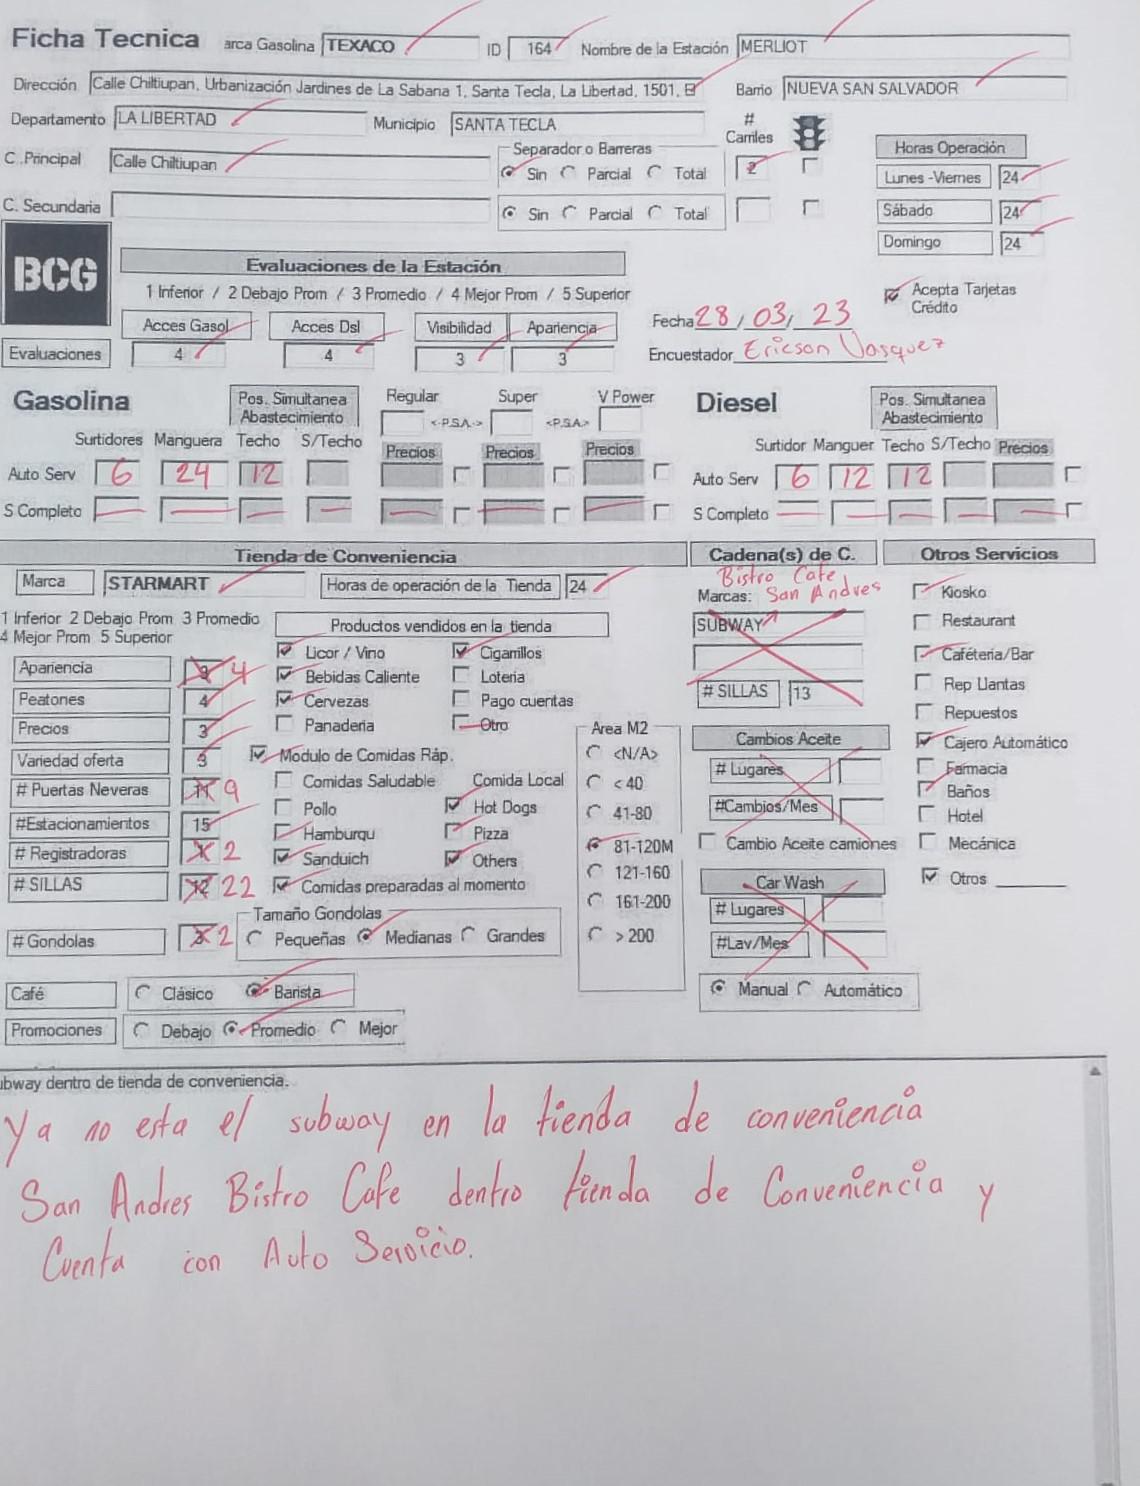 Ficha Tecnica arca Gasolina TEXACO ID 164 Nombre de la Estación MERLIOT
Dirección Calle Chiltiupan, Urbanización Jardines de La Sabana 1, Santa Tecla, La Libertad, 1501, El Barrio NUEVA SAN SALVADOR
Departamento LA LIBERTAD Municipio SANTA TECLA # Carriles
C .Principal Calle Chiltiupan Separador o Barreras Sin Parcial Total 2
Horas Operación
Lunes -Viernes 24
C. Secundaria Sin Parcial Total Sábado 24
Domingo 24
BCG
Evaluaciones de la Estación
1 Inferior / 2 Debajo Prom / 3 Promedio / 4 Mejor Prom / 5 Superior
Acepta Tarjetas Crédito
Acces Gasol Acces Dsl Visibilidad Apariencia
Fecha 28/03/23
Evaluaciones 4 4 3 3
Encuestador Ericson Vasquez
Gasolina Pos. Simultanea Abastecimiento Regular Super V Power
<-P.S.A.-> <P.S.A>
Diesel Pos. Simultanea Abastecimiento
Surtidores Manguera Techo S/Techo Precios Precios Precios
Surtidor Manguer Techo S/Techo Precios
Auto Serv 6 24 12
Auto Serv 6 12 12
S Completo
S Completo
Tienda de Conveniencia
Marca STARMART Horas de operación de la Tienda 24
1 Inferior 2 Debajo Prom 3 Promedio
4 Mejor Prom 5 Superior
Productos vendidos en la tienda
Apariencia 3 4
Peatones 4
Precios 3
Variedad oferta 3
# Puertas Neveras 11 9
#Estacionamientos 15
# Registradoras 2
# SILLAS 12 22
# Gondolas 3 2
Licor / Vino Cigarillos
Bebidas Caliente Loteria
Cervezas Pago cuentas
Panaderia Otro
Modulo de Comidas Ráp.
Comidas Saludable Comida Local
Pollo Hot Dogs
Hamburqu Pizza
Sanduich Others
Comidas preparadas al momento
Tamaño Gondolas
Pequeñas Medianas Grandes
Area M2
<N/A>
< 40
41-80
81-120M
121-160
161-200
> 200
Café Clásico Barista
Promociones Debajo Promedio Mejor
Cadena(s) de C.
Bistro Cafe
Marcas: San Andres
SUBWAY
# SILLAS 13
Cambios Aceite
# Lugares
#Cambios/Mes
Cambio Aceite camiones
Car Wash
# Lugares
#Lav/Mes
Manual Automático
Otros Servicios
Kiosko
Restaurant
Caféteria/Bar
Rep Llantas
Repuestos
Cajero Automático
Farmacia
Baños
Hotel
Mecánica
Otros
ubway dentro de tienda de conveniencia.
Ya no esta el subway en la tienda de conveniencia
San Andres Bistro Cafe dentro tienda de Conveniencia y
Cuenta con Auto Servicio.